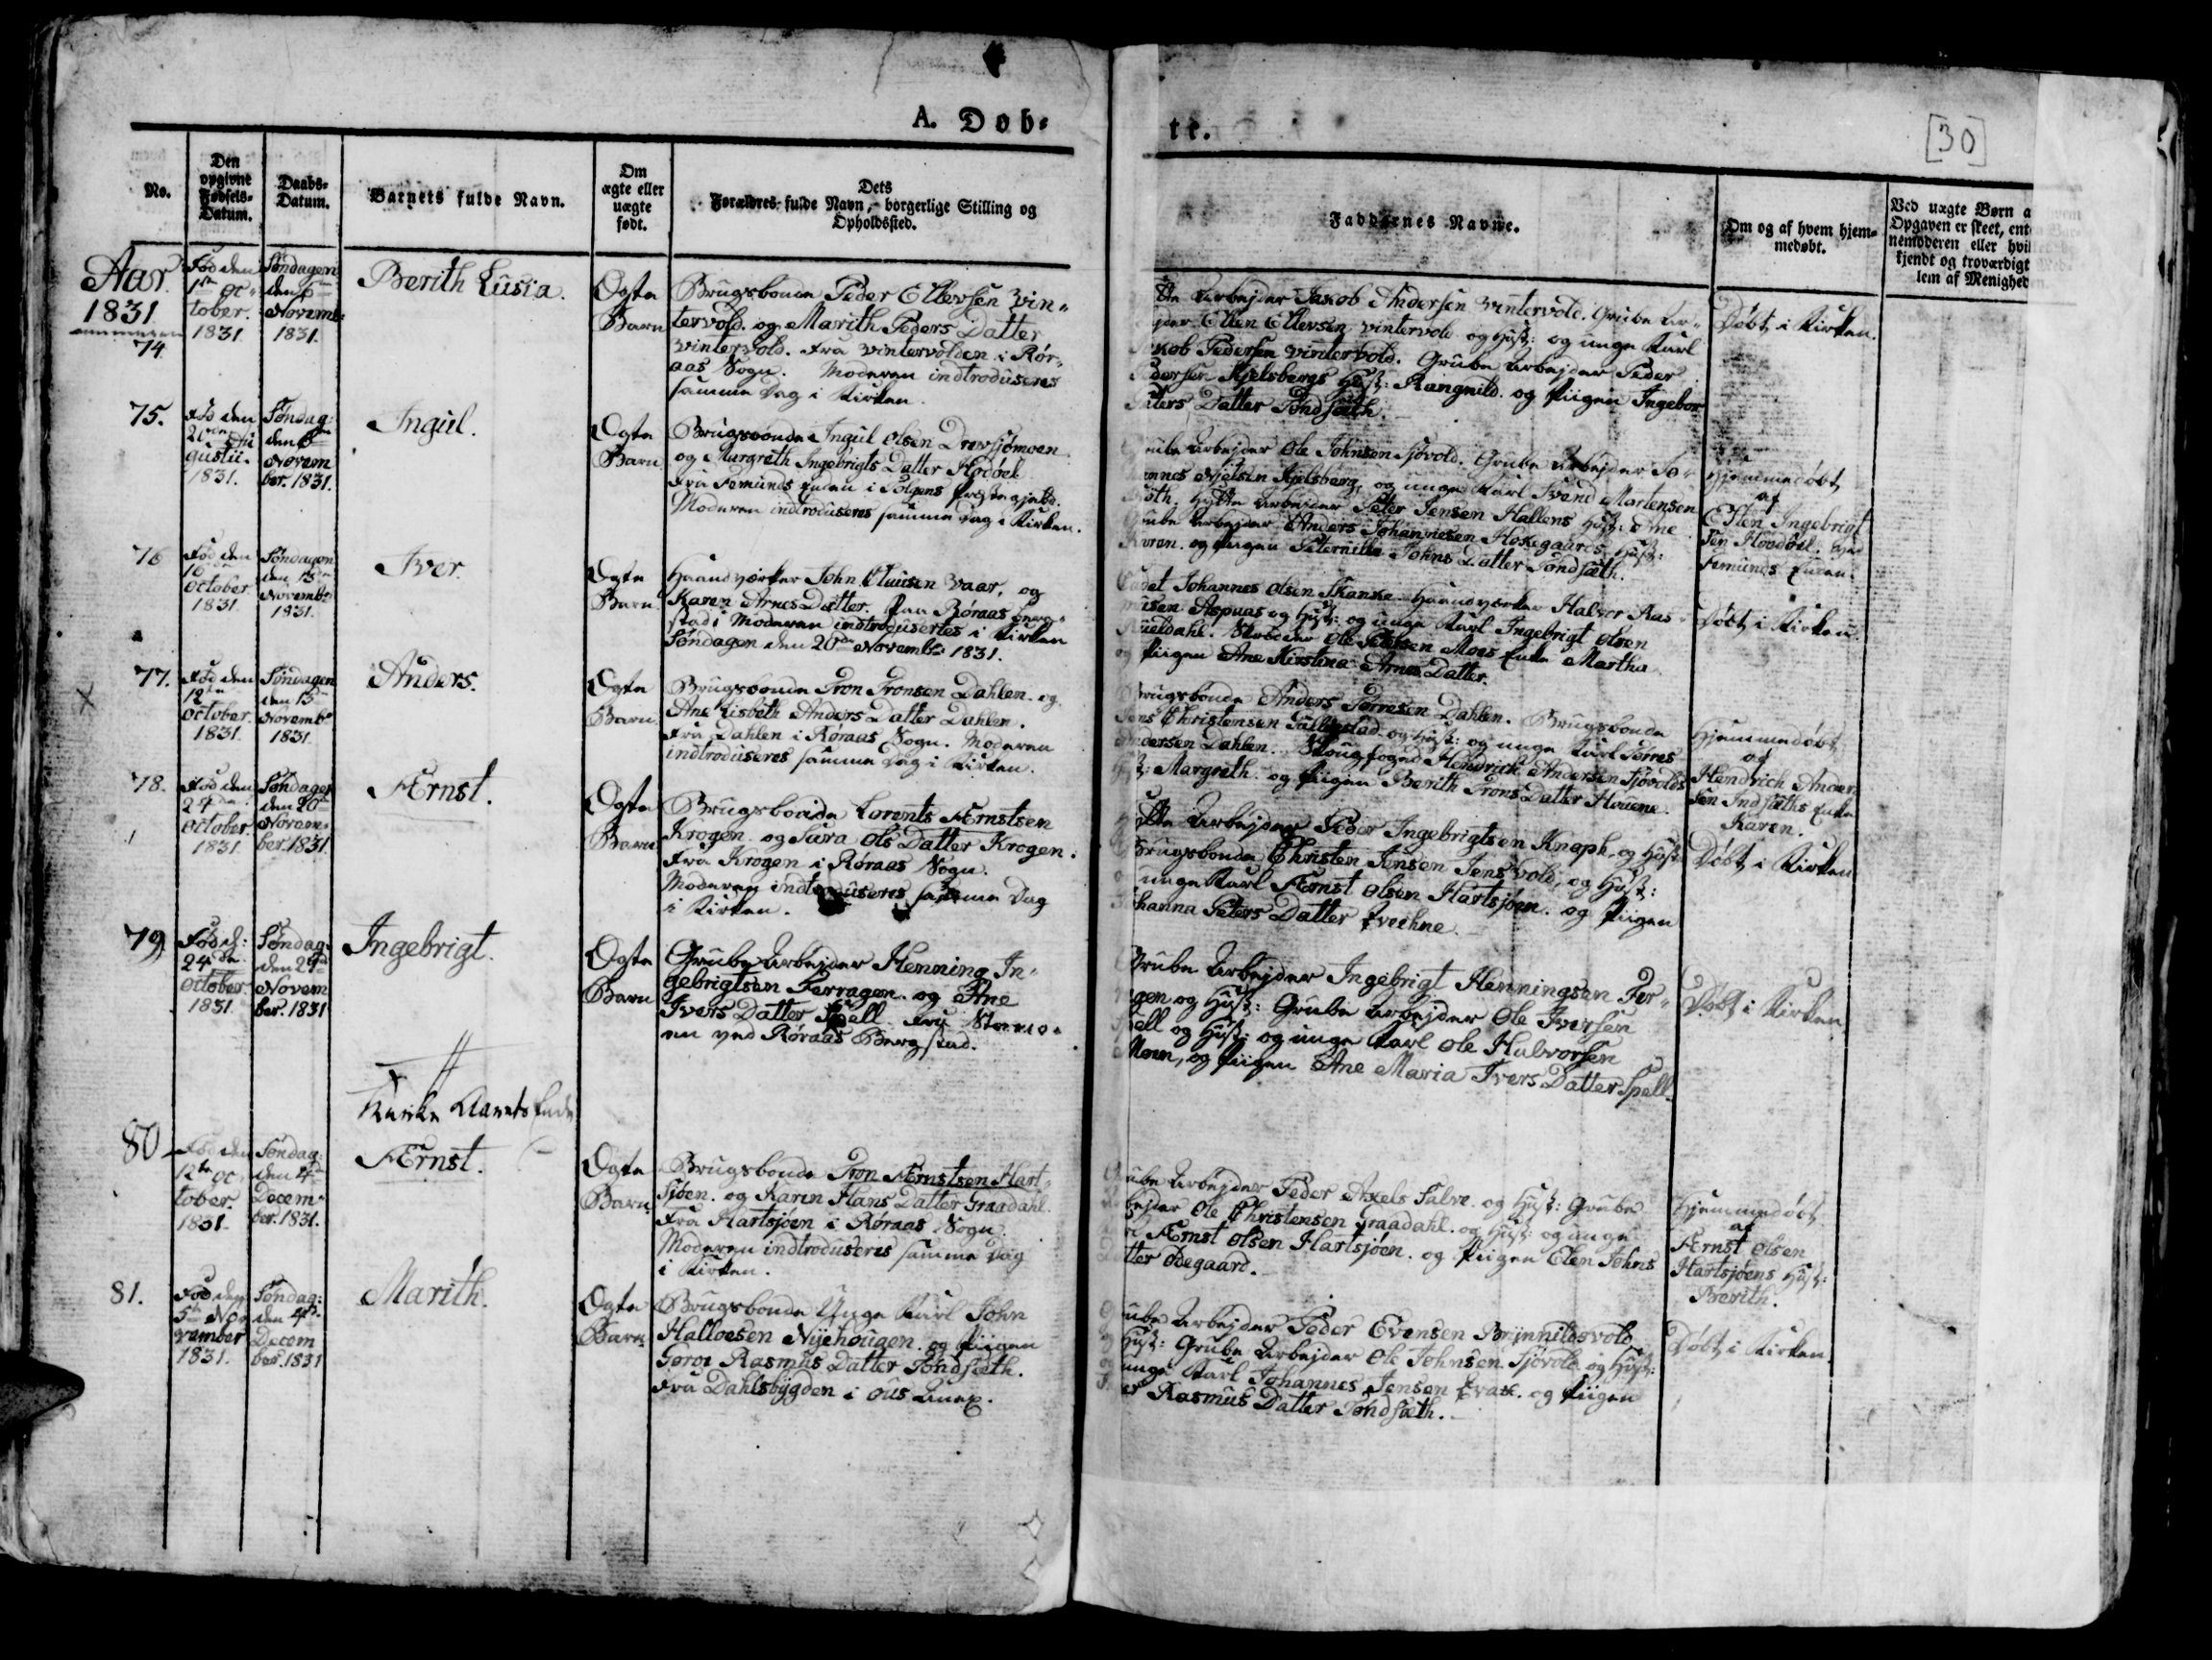 A. Døb-
te.
[30]
No.
Den
opgivne
Fødsels-
Datum.
Daabs-
Datum.
Barnets fulde Navn.
Om
ægte eller
uægte
født.
Dets
Forældres fulde Navn, borgerlige Stilling og
Opholdssted.
Faddernes Navne.
Om og af hvem hjem-
medøbt.
Ved uægte Børn a
Opgaven er skeet, ent
nemoderen eller hvil
kjendt og troværdigt
lem af Menighed
Aar
1831
74
Fød den
1ste Oc-
tober.
1831
Søndagen
den 6te
Novemb:
1831.
Berith Lusia.
Ægte
Barn
Brugsbonde Peder Ellevsen Vin-
tervold. og Marith Peders Datter
Vintervold. fra Vintervolden i Rør-
aas Sogn. Moderen indtroduseres
samme Dag i Kirken.
Arbejder Jakob Andersen Vintervold. Grube Ar-
Ellen Ellevsen Vintervold og Hust: og unge Karl
Jakob Pedersen Vintervold. Grube Arbejder Peder
Pedersen Kjelsbergs Hust: Rangnild. og Piigen Ingebor
Peters Datter Tøndsæth.
Døbt i Kirken.
75.
Fød den
Au
gustii.
1831.
Søndag:
den 6te
Novem
ber. 1831.
Ingul.
Ægte
Barn
Brugsbonde Ingul Olsen Drevsjømoen
og Margreth Ingebrigts Datter Hodøel
fra Femunds Enden i Tolgens Præstegjæld.
Moderen indtroduseres samme Dag i Kirken.
Grube Arbejder Ole Johnsen Sjøvold. Grube Arbejder Jo-
hannes Kjelsen Kjelsberg, og unge Karl Svend Martensen
Hytte Arbejder Peter Jensen Hallens Hust: Ane
Grube Arbejder Anders Johannesen Hosegaards Hust:
Karen. og Piigen Peternille Johns Datter Tøndsæth.
Hjemmedøbt
af
Ellen Ingebrigt
sen Hovdøel. ved
Femunds Enden.
76
Fød den
16de
October
1831.
Søndagen
den 13de
Novemb:
1831.
Iver.
Ægte
Barn
Haandværker John Clausen Vaar, og
Karen Arnes Datter. Paa Røraas Berg-
stad; Moderen indtrodusertes i Kirken
Søndagen den 20de Novemb: 1831.
Cadet Johannes Olsen Skanke. Haandværker Halvor Ras-
musen Aspaas og Hust: og unge Karl Ingebrigt Olsen
Ole Petersen Moes Enke Martha
og Piigen Ane Kirstine Arnes Datter.
Døbt i Kirken.
77.
Fød den
12te
October.
1831.
Søndagen
den 13de
Novemb:
1831.
Anders.
Ægte
Barn
Brugsbonde Tron Tronsen Dahlen. og
Ane Lisbeth Anders Datter Dahlen.
fra Dahlen i Røraas Sogn. Moderen
indtroduseres samme Dag i Kirken.
Brugsbonde Anders Torresen Dahlen. Brugsbonde
Jens Christensen Galligstad. og Hust: og unge Karl Torres
Andersen Dahlen. Skougfoged Hendrich Andersen Sjøvolds
Hust: Margreth. og Piigen Berith Trons Datter Houene.
Hjemmedøbt
af
Hendrich Ander
sen Indsæths Enke
Karen.
78.
Fød den
24de
October.
1831
Søndagen
den 20de
Novem-
ber. 1831
Ærnst.
Ægte
Barn
Brugsbonde Lorents Ærnstsen
Krogen. og Sara Ols Datter Krogen.
fra Krogen i Røraas Sogn.
Moderen indtroduseres samme Dag
i Kirken.
Hytte Arbejder Peder Ingebrigtsen Knaph. og Hust:
Brugsbonde Christen Jensen Jensvold, og Hust:
og unge Karl Ærnst Olsen Hartsjøen. og Piigen
Johanna Peters Datter Evechne.
Døbt i Kirken
79
Fød d:
24de
October
1831
Søndag:
Novem
ber. 1831
Ingebrigt.
Ægte
Barn
Grube Arbejder Henning In-
gebrigtsen Ferragen. og Ane
Ivers Datter Spell. fra
en ved Røraas Bergstad.
Grube Arbejder Ingebrigt Henningsen Fer-
agen og Hust: Grube Arbejder Ole Iversen
Spell og Hust: og unge Karl Ole Halvorsen
Moen, og Piigen Ane Maria Ivers Datter Spell.
Døbt i Kirken
Kirke Aarets Ende
80
Fød den
12te Oc-
tober.
1831.
Søndag:
den 4de
Decem-
ber. 1831.
Ærnst.
Ægte
Barn.
Brugsbonde Tron Ærnstsen Hart-
sjøen. og Karen Hans Datter Graadahl.
fra Hartsjøen i Røraas Sogn.
Moderen indtroduseres samme Dag
i Kirken.
Grube Arbejder Peder Axels Salve. og Hust: Grube
Arbejder Ole Christensen Graadahl. og Hust: og unge
Ærnst Olsen Hartsjøen. og Piigen Elen Johns
Datter Ødegaard.
Hjemmedøbt
af
Ærnst Olsen
Hartsjøens Hust:
Berith.
81.
Fød den
5te No-
vember
1831.
Søndag:
den 4de
Decem
ber. 1831
Marith.
Ægte
Barn
Brugsbonde Unge Karl John
Halloesen Nyehougen. og Piigen
Gørøe Rasmus Datter Tøndsæth.
fra Dahlsbygden i Ous Anex.
Grube Arbejder Peder Evensen Brynnildsvold
og Hust: Grube Arbejder Ole Johnsen Sjøvold. og Hust:
og unge Karl Johannes Jensen Evate. og Piigen
Rasmus Datter Tøndsæth.
Døbt i Kirken.